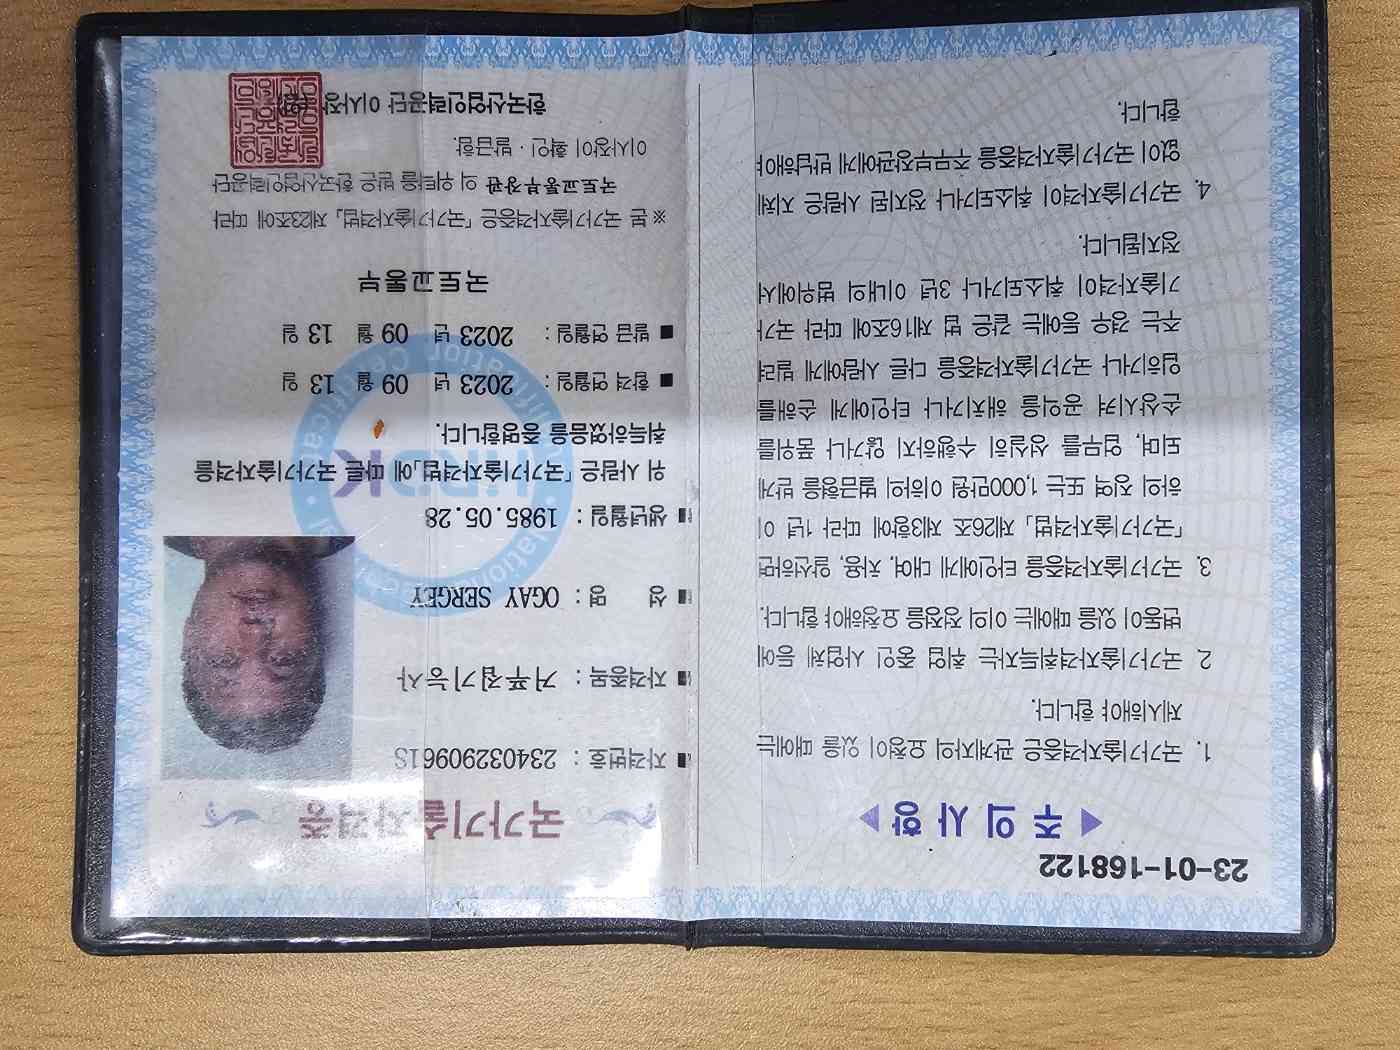 23-01-168122
주 의 사 항
1. 국가기술자격증은 관계자의 요청이 있을 때에는
제시해야 합니다.
2. 국가기술자격취득자는 취업 중인 사업체 등에
변동이 있을 때에는 이의 정정을 요청해야 합니다.
3. 국가기술자격증을 타인에게 대여, 차용, 알선하면
「국가기술자격법」 제26조 제3항에 따라 1년 이
하의 징역 또는 1,000만원 이하의 벌금형을 받게
되며, 업무를 성실히 수행하지 않거나 품위를
손상시켜 공익을 해치거나 타인에게 손해를
입히거나 국가기술자격증을 다른 사람에게 빌려
주는 경우 등에는 같은 법 제16조에 따라 국가
기술자격이 취소되거나 3년 이내의 범위에서
정지됩니다.
4. 국가기술자격이 취소되거나 정지된 사람은 지체
없이 국가기술자격증을 주무부장관에게 반납해야
합니다.
국가기술자격증
■ 자격번호 : 23403290961S
■ 자격종목 : 거푸집기능사
■ 성 명 : OGAY SERGEY
■ 생년월일 : 1985.05.28
위 사람은 「국가기술자격법」에 따른 국가기술자격을
취득하였음을 증명합니다.
■ 합격 연월일 : 2023 년 09 월 13 일
■ 발급 연월일 : 2023 년 09 월 13 일
국토교통부
※ 본 국가기술자격증은 「국가기술자격법」 제23조에 따라
국토교통부장관 의 위탁을 받은 한국산업인력공단
이사장이 확인 · 발급함.
한국산업인력공단 이사장 (인)
HRDK